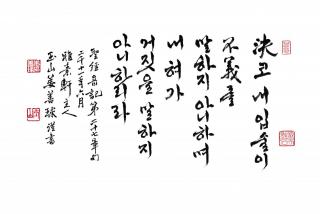 決코 내 입술이
不義를
말하지 아니하며
내 혀가
거짓을 말하지
아니하리라
聖經 욥記 第二十七章 四
二千十一年 六月
雅素軒 主人
玉山 姜善球 謹書